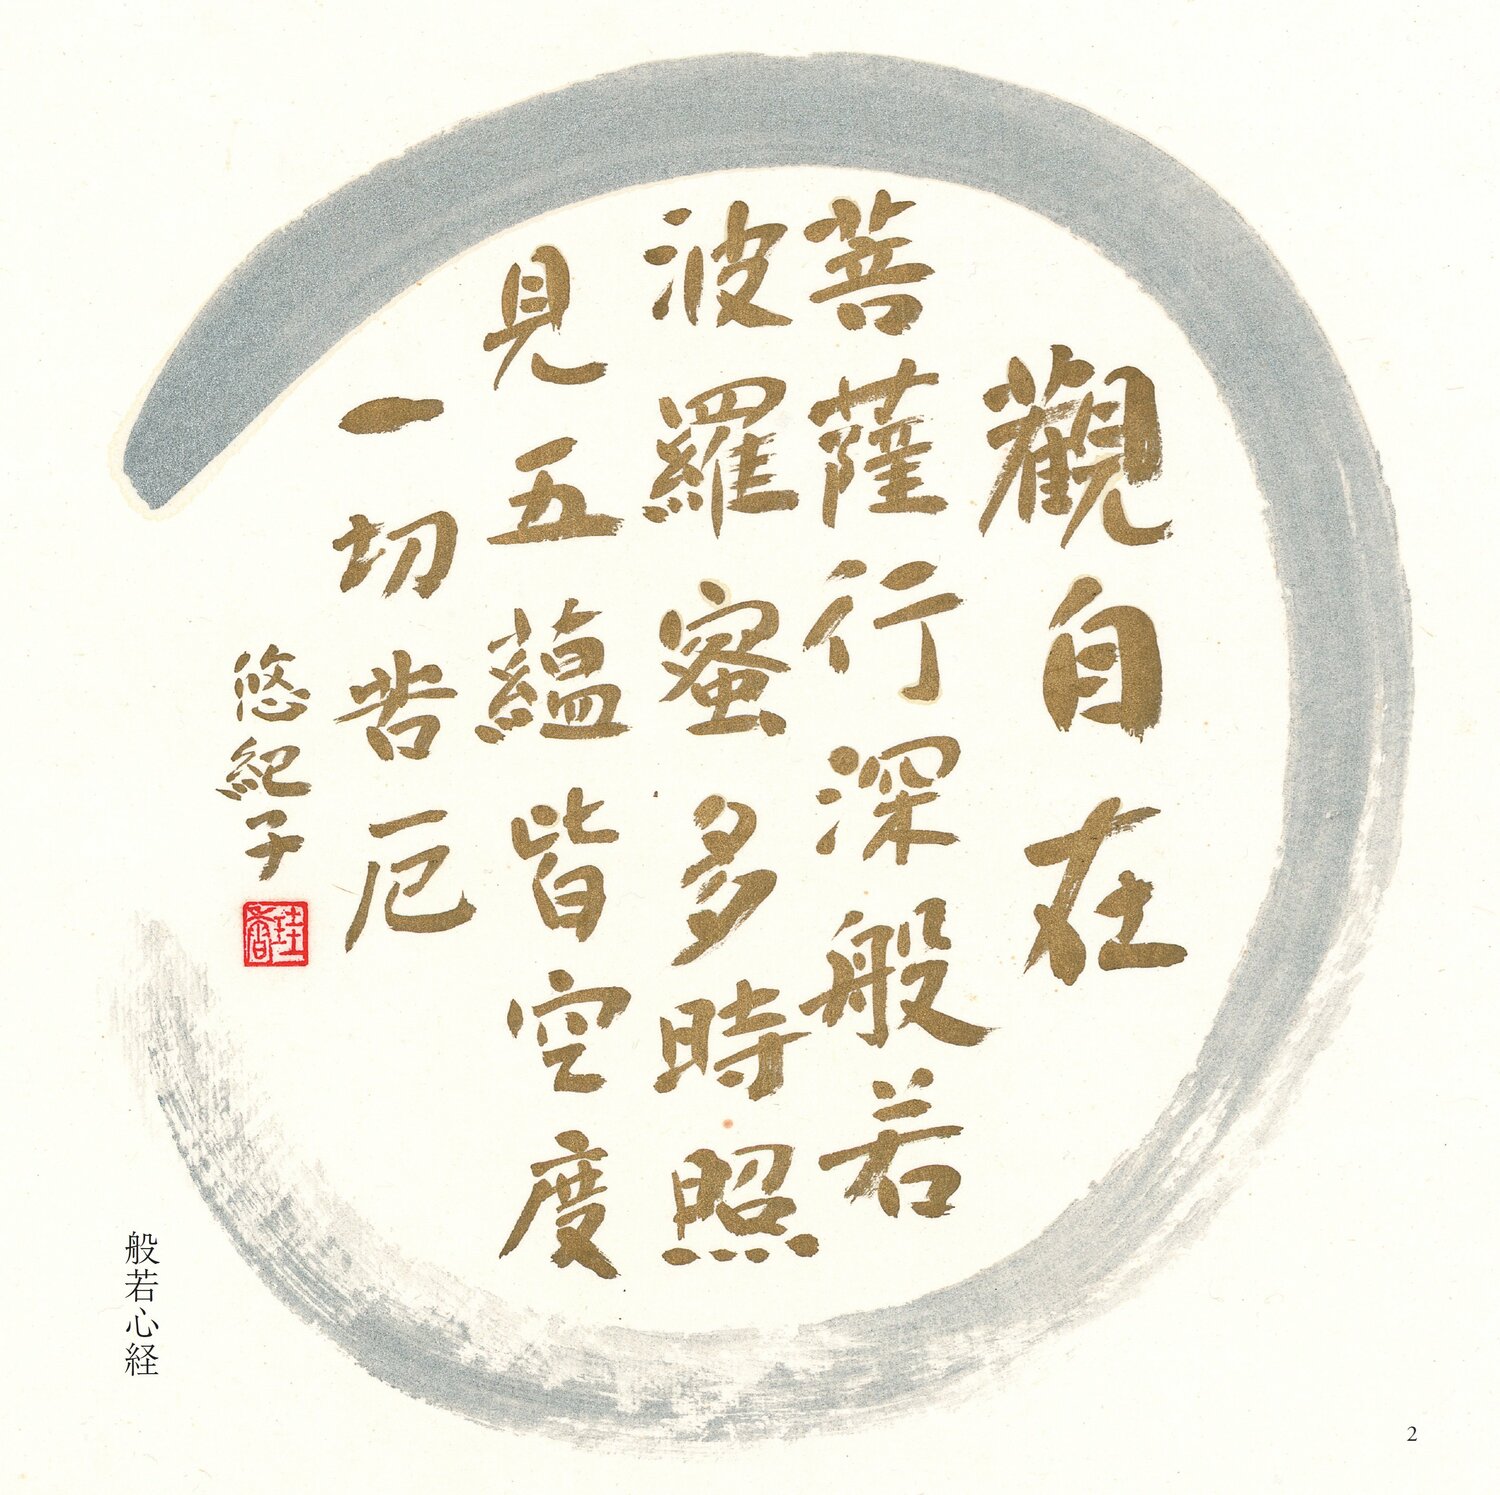 觀自在
菩薩行深般若
波羅蜜多時照
見五蘊皆空度
一切苦厄
悠紀子
般若心経
2